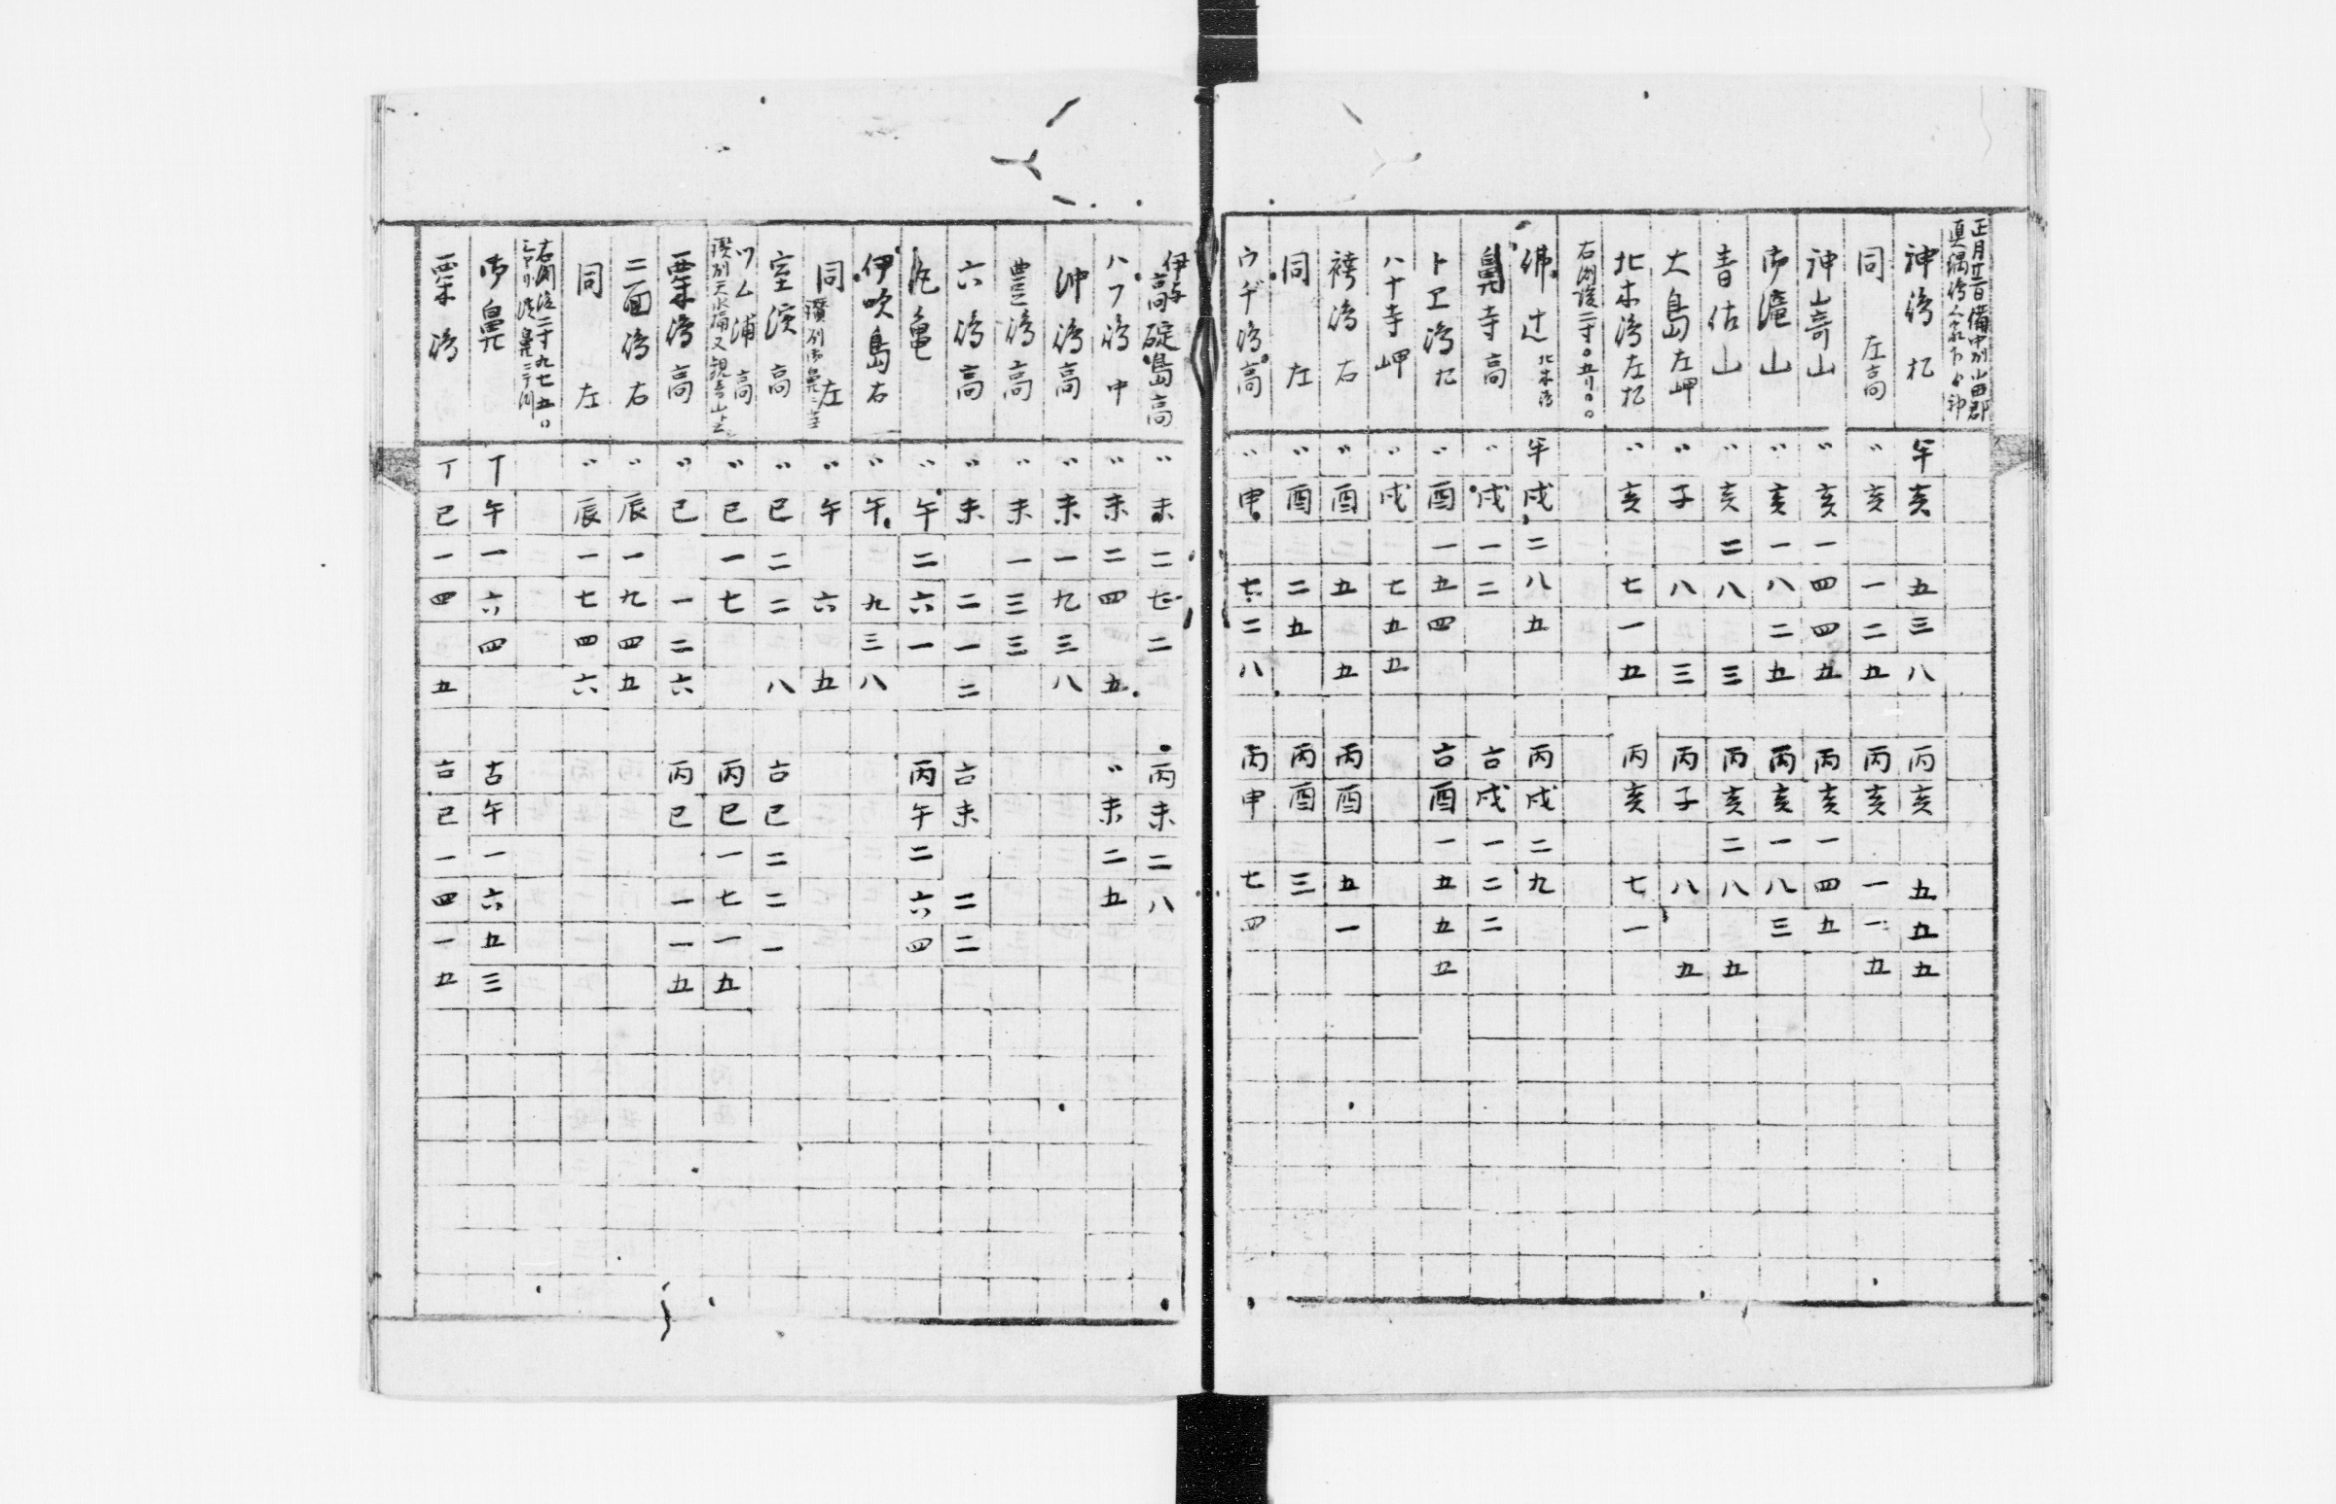 正月廿二日備中州小田郡
真鍋島
神島 杧 午亥 五三八 丙亥 五五五
同 左高 〃亥 一二五 丙亥 一一五
神山奇山 〃亥一四四五 丙亥一四五
御滝山 〃亥一八二五 丙亥一八三
青佐山 〃亥二八 三 丙亥二八 五
大島左岬 〃子 八 三 丙子 八 五
北木島左杧 〃亥 七一五 丙亥 七一
右測後二寸〇五リ〇〇
佛辻 北木島 午戌二八五 丙戌二九
鼻寺高 〃戌一二 古戌一二二
トヱ島杧 〃酉一五四 古酉一五五五
八十寺岬 〃戌 七五五
袴島 右 〃酉 五 五 丙酉 五一
同 左 〃酉 二五 丙酉 三
ウヂ島高 〃申 七二八 丙申 七四
伊与高碇島高 〃未二七二 丙未二八
ハブ島 中 〃未二四 五 〃未二五
沖島高 〃未一九三八
豊島高 〃未一三三
六島高 〃未 二一二 古未 二二
丸亀 〃午二六一 丙午二六四
伊吹島右 〃午 九三八
同 左 〃午 六 五
室浜高 〃巳二二 八 古巳二二一
ツム浦高 〃巳一七 丙巳一七一五
粟島高 〃巳 一二六 丙巳 一一五
二面島右 〃辰一九四五
同 左 〃辰一七四六
右測後二寸九七五〇
御鼻 丁午一六四 古午一六五三
粟島 丁巳一四 五 古巳一四一五